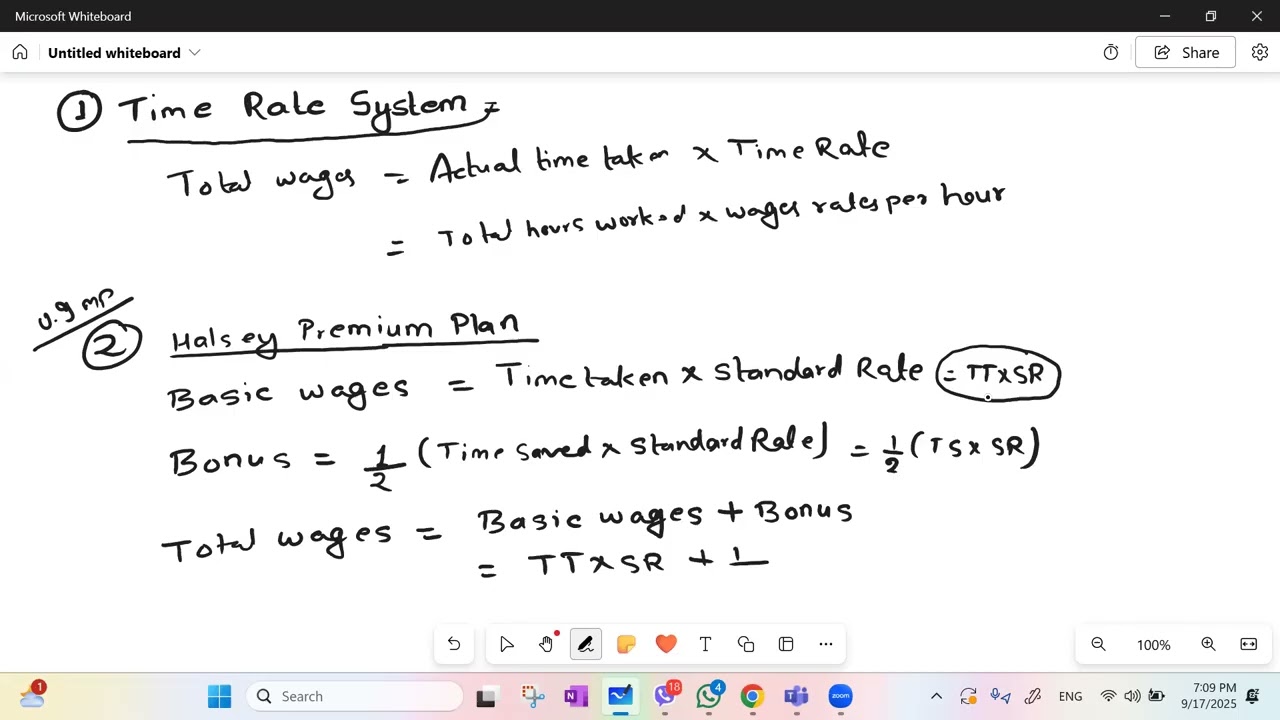 Microsoft Whiteboard
Untitled whiteboard
Share
① Time Rate System
Total wages = Actual time taken × Time Rate
= Total hours worked × wages rates per hour
v.g mp
② Halsey Premium Plan
Basic wages = Time taken × Standard Rate = TT×SR
Bonus = 1/2 (Time saved × Standard Rate) = 1/2 (TS × SR)
Total wages = Basic wages + Bonus
= TT×SR + 1
T
100%
1
Search
N
18
4
zoom
ENG
7:09 PM
9/17/2025